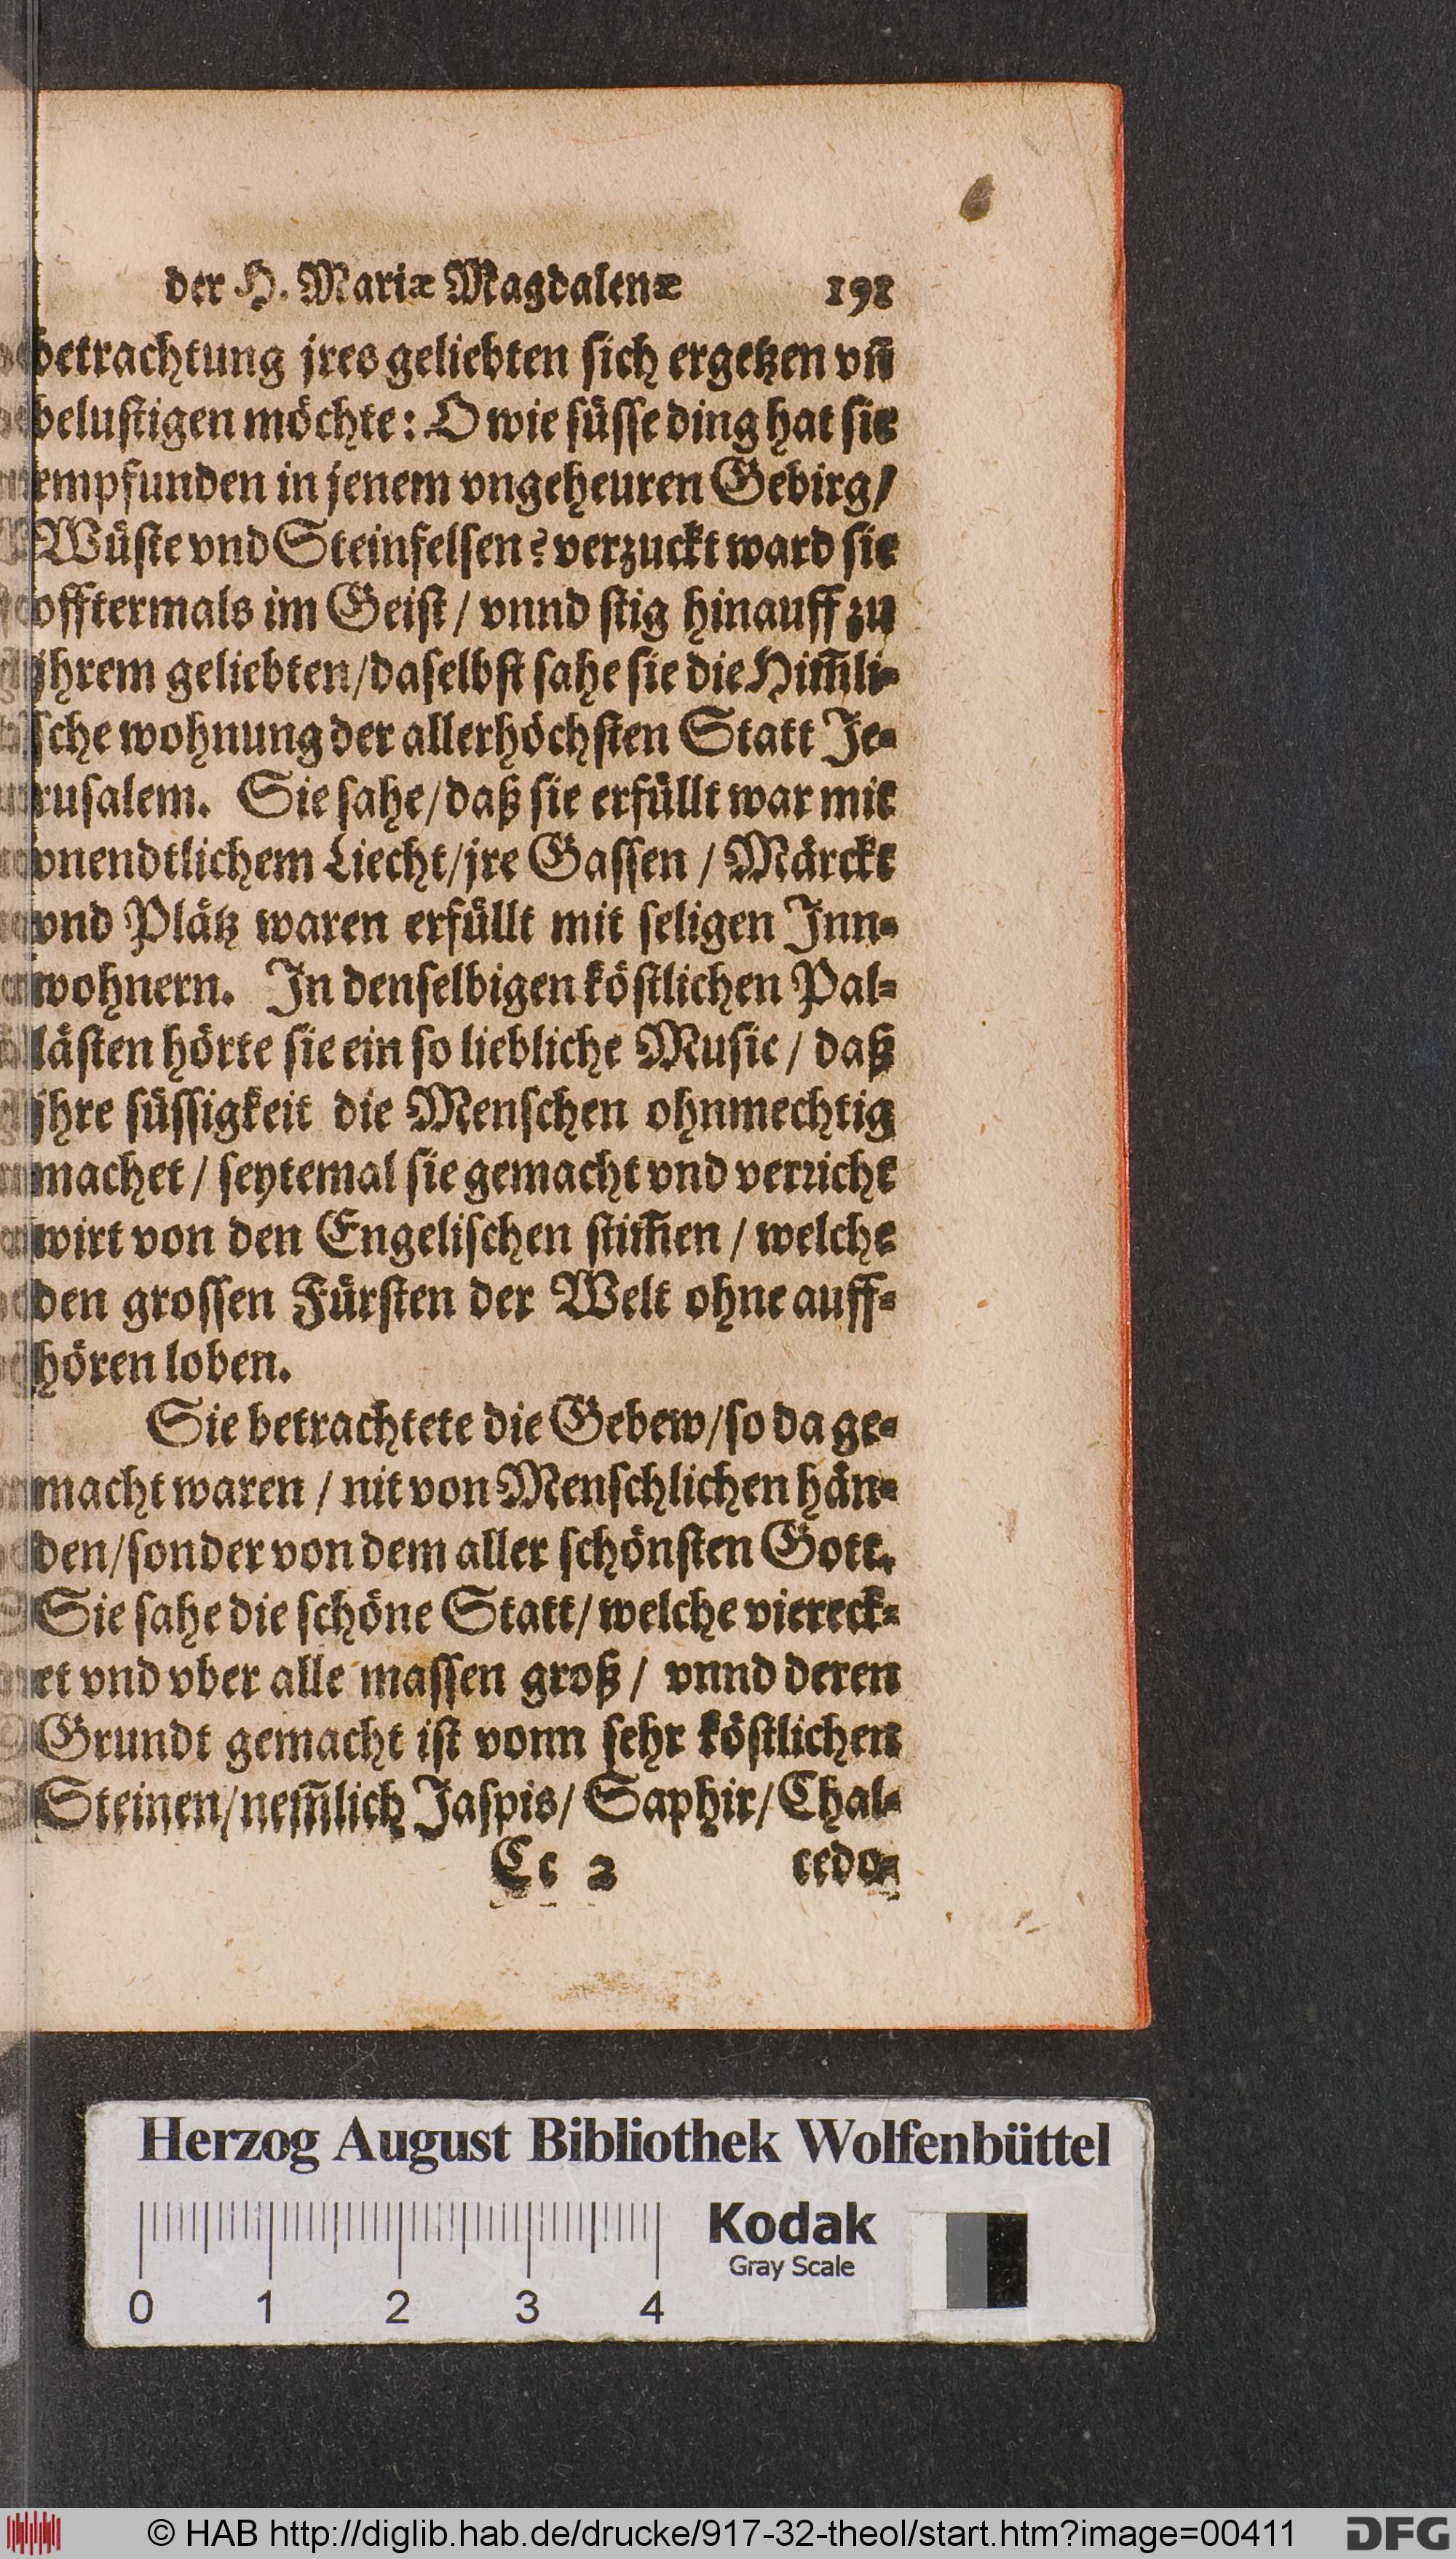 der H. Mariæ Magdalenæ 198
betrachtung jres geliebten sich ergetzen vñ
belustigen möchte: O wie süsse ding hat sie
empfunden in jenem vngeheuren Gebirg/
Wüste vnd Steinfelsen? verzuckt ward sie
offtermals im Geist / vnnd stig hinauff zu
jhrem geliebten/daselbst sahe sie die Him̃li-
sche wohnung der allerhöchsten Statt Je-
rusalem. Sie sahe/daß sie erfüllt war mit
vnendtlichem Liecht/jre Gassen / Märckt
vnd Plätz waren erfüllt mit seligen Inn-
wohnern. In denselbigen köstlichen Pal-
lästen hörte sie ein so liebliche Music / daß
jhre süssigkeit die Menschen ohnmechtig
machet / seytemal sie gemacht vnd verricht
wirt von den Engelischen stim̃en / welche
den grossen Fürsten der Welt ohne auff-
hören loben.
Sie betrachtete die Gebew/so da ge-
macht waren / nit von Menschlichen hän-
den/sonder von dem aller schönsten Gott.
Sie sahe die schöne Statt/ welche viereck-
et vnd vber alle massen groß / vnnd deren
Grundt gemacht ist vonn sehr köstlichen
Steinen/nem̃lich Jaspis/ Saphir/ Chal-
Cc 2 cedo-
Herzog August Bibliothek Wolfenbüttel
Kodak
Gray Scale
0 1 2 3 4
© HAB http://diglib.hab.de/drucke/917-32-theol/start.htm?image=00411 DFG